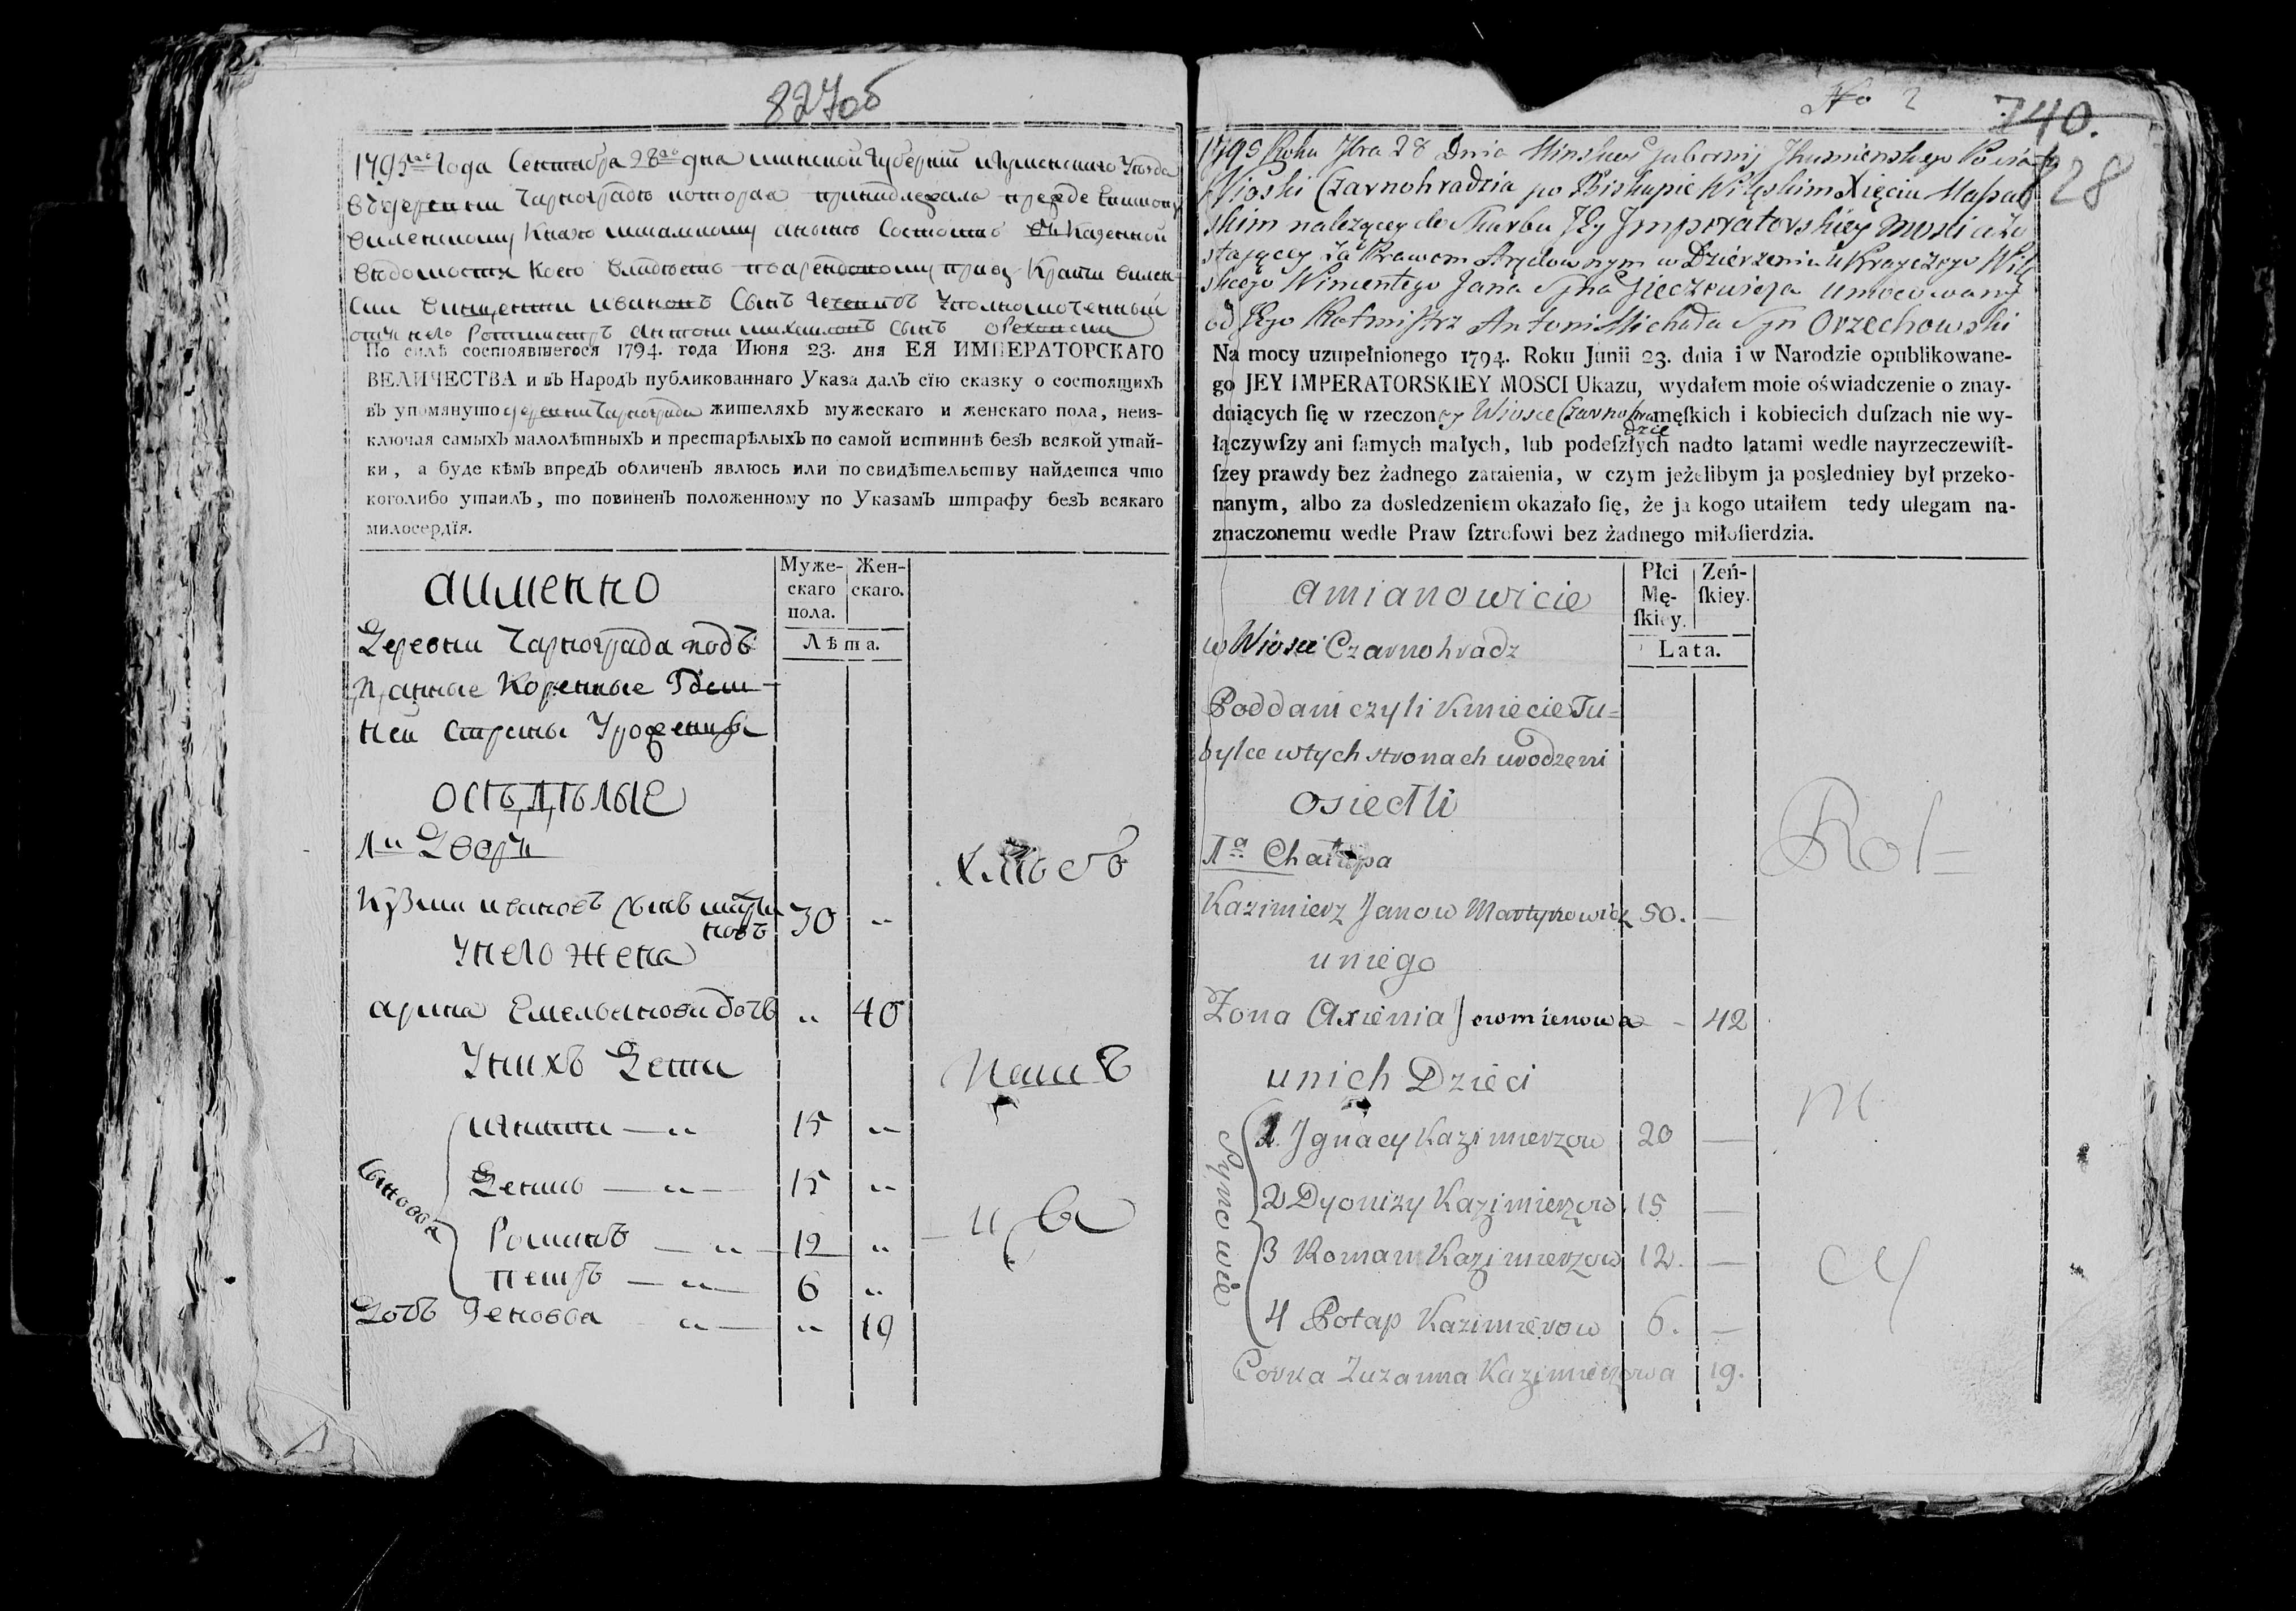 827об
1795го Года Сентября 28го дня минской Губернїи игуменскаго Уезда
в деревни Чарнограде которая принадлежала прежде
виленскому Князю масалскому аныне Состоитъ въ Казенной
ведомости Коего владеетъ поарендовному праву
Сынъ Уполномоченный
отъ него Ротмистръ антони михаиловъ Сынъ орехоvски
По силѣ состоявшегося 1794. года Июня 23. дня ЕЯ ИМПЕРАТОРСКАГО
ВЕЛИЧЕСТВА и въ Народъ публикованнаго Указа далъ сїю сказку о состоящихъ
въ упомянуто деревни Чарнограда жителяхъ мужескаго и женскаго пола, неиз-
ключая самыхъ малолѣтныхъ и престарѣлыхъ по самой истиннѣ безъ всякой утай-
ки, а буде кѣмъ впредъ обличенъ явлюсь или по свидѣтельству найдется что
коголибо утаилъ, то повиненъ положенному по Указамъ штрафу безъ всякаго
милосердїя.
аименно
Муже-
скаго
пола.
Жен-
скаго.
Лѣта.
Деревни Чарнограда подъ
данные Коренные Тдеш-
ней Страны Уроженцы
осѣдлые
1й Дворъ
Кузма ивановъ Сынъ марти
новъ 30 „
Унего жена
арина Емельянова дочь „ 40
Унихъ Дети
Сыновья
игнатъ — „ 15 „
Денисъ — „ — 15 „
Романъ — „ — 12 „
петръ — „ — 6 „
Дочь Феновва „ — „ 19
No 2
740.
828
1795 Roku 7bra 28 Dnia Minskiej Gubernij Jhumienskiego Powiatu
Wioski Czarnohradzia po Biskupie Wileńskim Xięciu Massal
skim należącey do Skarbu Jey Jmperatorskiey Mosci a zo
staiącey za Prawem Aręndownym w Dzierżeniu Krayczego Wilę
skiego Wincentego Jana Syna Umocowany
od Jego Rotmistrz Antoni Michała Syn Orzechowski
Na mocy uzupełnionego 1794. Roku Junii 23. dnia i w Narodzie opublikowane-
go JEY IMPERATORSKIEY MOSCI Ukazu, wydałem moie oświadczenie o znay-
duiących ſię w rzeczoney Wiosce Czarnohra męſkich i kobiecich duſzach nie wy-
dzie
łączywſzy ani ſamych małych, lub podeſzłych nadto latami wedle nayrzeczewiſt-
ſzey prawdy bez żadnego zataienia, w czym jeżelibym ja posledniey był przeko-
nanym, albo za dosledzeniem okazało ſię, że ja kogo utaiłem tedy ulegam na-
znaczonemu wedle Praw ſztrofowi bez żadnego miłoſierdzia.
amianowicie
Płci
Mę-
ſkiey.
Zeń-
ſkiey.
Lata.
w Wiosce Czarnohradz
Poddani czyli Kmiecie Tu=
bylce wtych stronach urodzeni
osiedli
1a Chałupa
Kazimierz Janow Martynowicz 50. —
uniego
Zona Axienia Jeromienowa - 42
unich Dzieci
Synowie
1 Jgnacy Kazimierzow 20 —
2 Dyonizy Kazimierzow 15 —
3 Roman Kazimierzow 12. —
4 Potap Kazimierow 6. —
Corka Zuzanna Kazimierzowa 19.
Rot=
m